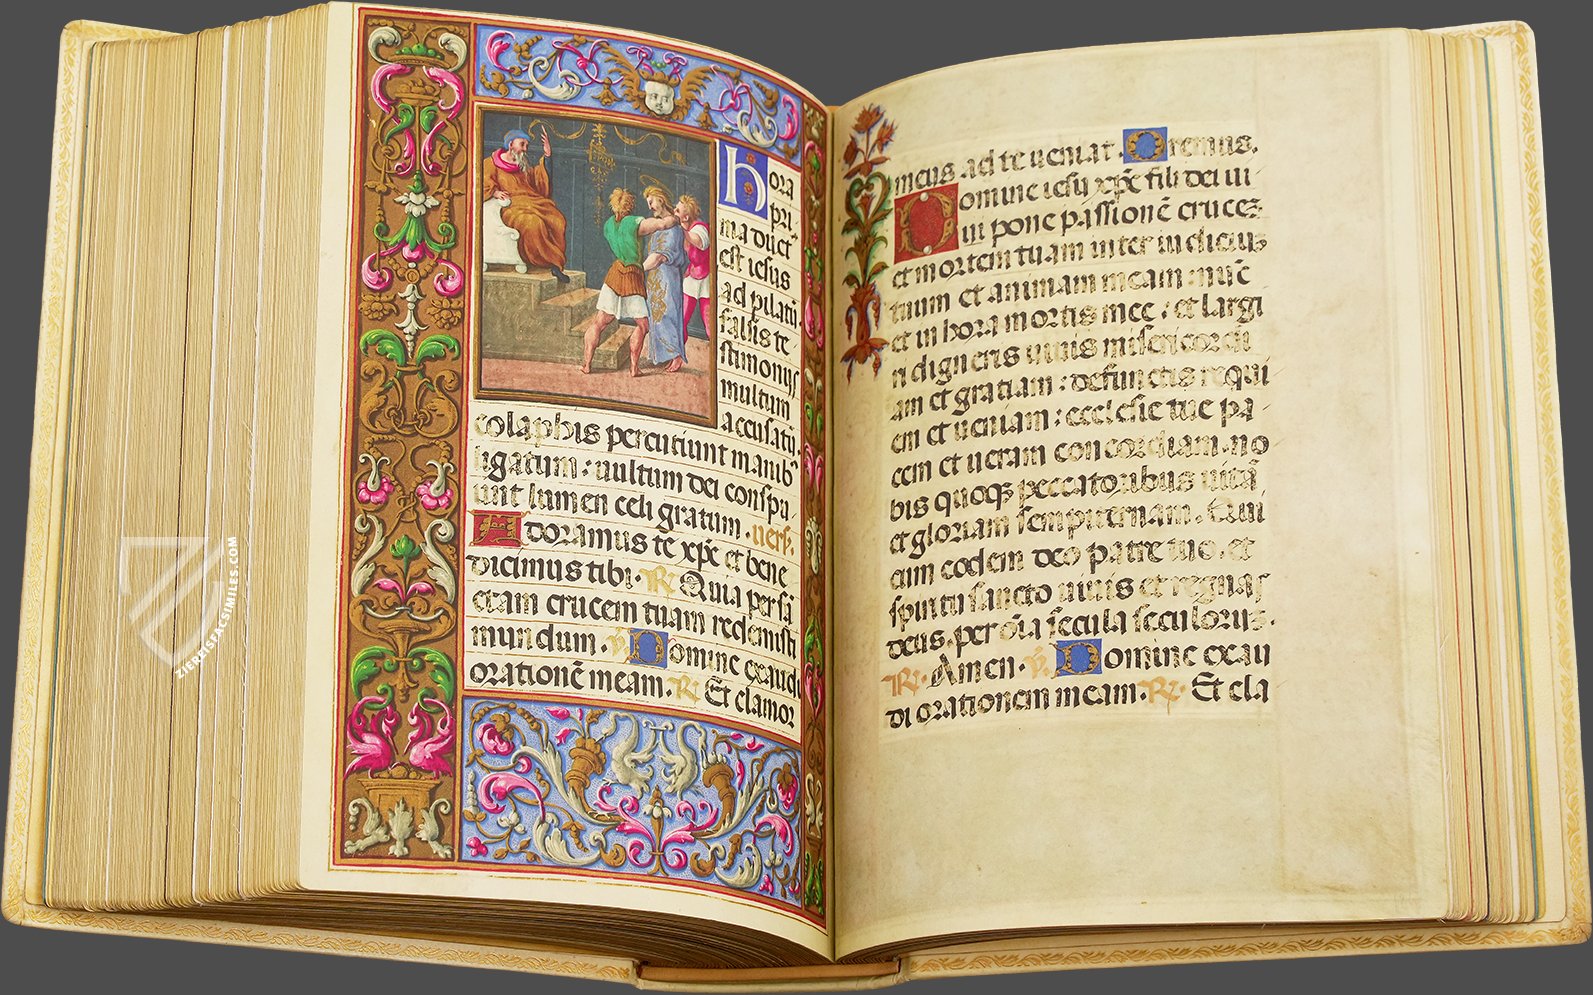 hora
pri
ma duct᷒
est iesus
ad pilatū
falsis te
stimonijs
multum
accusatū.
colaphis percutiunt manib᷒
ligatum : uultum dei conspu
unt lumen celi gratum. vers.
Adoramus te xp̄e et bene
dicimus tibi. R. Quia per sā
ctam crucem tuam redemisti
mundum. V. Domine exaudi
orationē meam. R. Et clamor
meus ad te ueniat. Oremus.
Domine iesu xp̄e fili dei ui
ui pone passionē crucez
et mortem tuam inter iudiciuz
tuum et animam meam : nūc
et in hora mortis mee : et largi
ri digneris uiuis misericordi
am et gratiam : defunctis requi
em et ueniam : ecclesie tue pa
cem et ueram concordiam. no
bis quoqꝫ peccatoribus uitā
et gloriam sempiternam. Qui
cum eodem deo patre tuo. et
spiritu sancto uiuis et regnas
deus. per oīa secula seculoruz.
R. Amen. V. Domine exau
di orationem meam. R. Et cla
ZIEREISFACSIMILES.COM